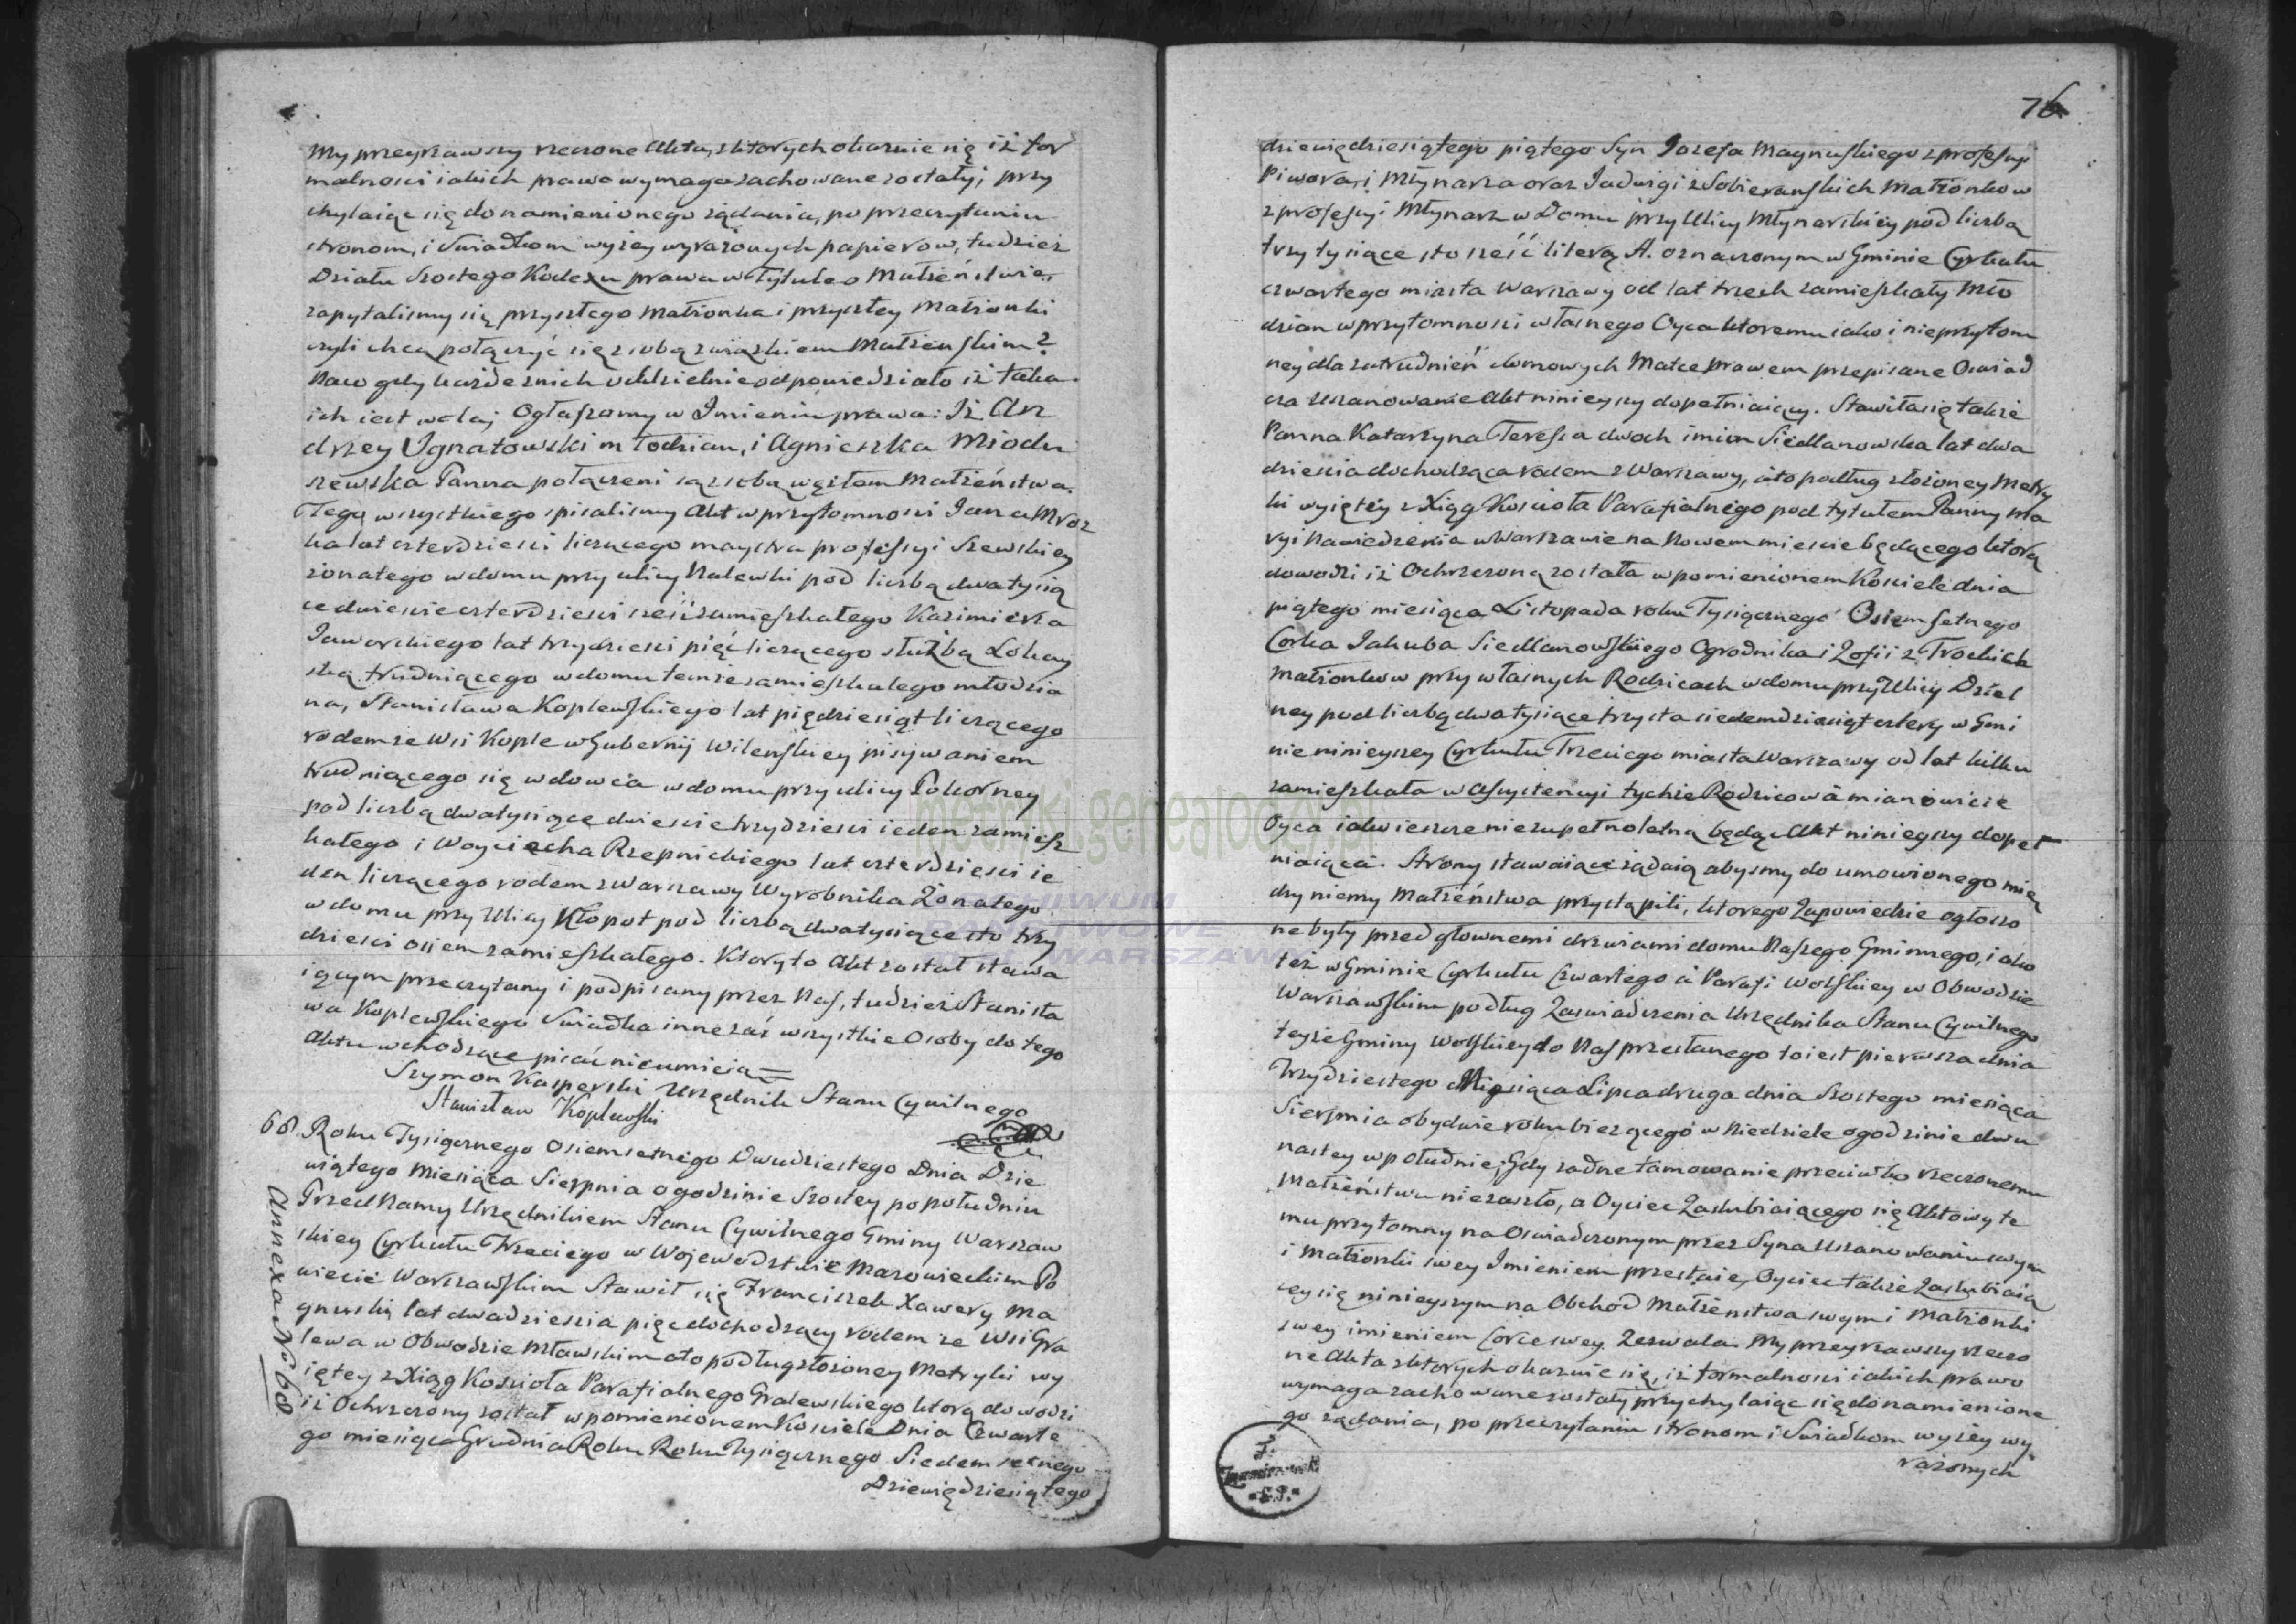 My przeyrzawszy rzeczone Akta, z ktorych okazuie się iż for
malnosci iakich prawo wymaga zachowane zostały; przy
chylaiąc się do namienionego żądania, po przeczytaniu
stronom, i Swiadkom wyżey wyrażonych papierow, tudzież
Działu szostego Kodexu prawa w Tytule o Małżeństwie,
zapytalismy się przyszłego Małżonka i przyszłey Małżonki
czyli chcą połączyć się z sobą związkiem Małżenskim?
Naco gdy każde z nich oddzielnie odpowiedziało iż taka
ich iest wola; Ogłaszamy w Imieniu prawa: Iż An
drzey Ignatowski młodzian, i Agnieszka Miodu
szewska Panna połączeni są z sobą węzłem Małżeństwa.
Tego wszystkiego spisalismy Akt w przytomnosci Jana Mroz
ka lat czterdziesci liczącego maystra professyi Szewskiey
żonatego w domu przy ulicy Nalewki pod liczbą dwa tysią
ce dwiescie czterdziesci sześć zamieszkałego Kazimierza
Jaworskiego lat trzydziesci pięć liczącego służbą Lokay
ską trudniącego w domu temże zamieszkałego młodzia
na, Stanisława Koplewskiego lat pięćdziesiąt liczącego
rodem ze Wsi Kople w Gubernij Wilenskiey pisywaniem
trudniącego się wdowca w domu przy ulicy Pokorney
pod liczbą dwa tysiące dwiescie trzydziesci ieden zamiesz
kałego i Woyciecha Rzepnickiego lat czterdziesci ie
den liczącego rodem z Warszawy Wyrobnika Żonatego
w domu przy Ulicy Kłopot pod liczbą dwa tysiące sto trzy
dziesci osiem zamieszkałego. Ktory to Akt został stawa
iącym przeczytany i podpisany przez Nas, tudzież Stanisła
wa Koplewskiego Swiadka inne zaś wszystkie Osoby do tego
Aktu wchodzące pisać nieumieią
Szymon Kasperski Urzędnik Stanu Cywilnego
Stanisław Koplewski
68. Roku Tysiącznego Osiemsetnego Dwudziestego Dnia Dzie
wiątego Miesiąca Sierpnia o godzinie Szostey po południu
Przed Namy Urzędnikiem Stanu Cywilnego Gminy Warszaw
skiey Cyrkułu Trzeciego w Wojewodztwie Mazowieckim Po
wiecie Warszawskim Stawił się Franciszek Xawery Ma
gnuski lat dwadziescia pięć dochodzący rodem ze Wsi Gra
lewa w Obwodzie Mławskim a to podług złożoney Metryki wy
iętey z Xiąg Kościoła Parafialnego Gralewskiego ktorą dowodzi
iż Ochrzczony został w pomienionem Kosciele Dnia Czwarte
go miesiąca Grudnia Roku Roku Tysiącznego Siedemsetnego
Dziewięćdziesiątego
Annexa No 68
76
dziewięćdziesiątego piątego Syn Jozefa Magnuskiego z professyi
Piwora, i Młynarza oraz Jadwigi z Sobieranskich Małżonkow
z professyi Młynarz w Domu przy Ulicy Młynarskiey pod liczbą
trzy tysiące sto sześć literą A. oznaczonym w Gminie Cyrkułu
czwartego miasta Warszawy od lat trzech zamieszkały Mło
dzian w przytomnosci własnego Oyca ktoremu iako i nieprzytom
ney dla zatrudnień domowych Matce prawem przepisane Oswiad
cza Uszanowanie Akt ninieyszy dopełniaiący. Stawiła się także
Panna Katarzyna Teressa dwoch imion Siedlanowska lat dwa
dziescia dochodząca rodem z Warszawy, a to podług złożoney Metry
ki wyiętey z Xiąg Koscioła Parafialnego pod tytułem Panny Ma
ryi Nawiedzenia w Warszawie na Nowem miescie będącego ktorą
dowodzi iż Ochrzczoną została w pomienionem Kosciele dnia
piątego miesiąca Listopada roku Tysiącznego Osiemsetnego
Corka Jakuba Siedlanowskiego Ogrodnika i Zofii z Trockich
Małżonkow przy własnych Rodzicach w domu przy Ulicy Dziel
ney pod liczbą dwa tysiące trzysta siedemdziesiąt cztery w Gmi
nie ninieyszey Cyrkułu Trzeciego miasta Warszawy od lat kilku
zamieszkała w Assystencyi tychże Rodzicow a mianowicie
Oyca iako ieszcze niezupełnoletną będąc Akt ninieyszy dopeł
niaiąca. Strony stawaiące żądaią abysmy do umowionego mię
dzy niemy Małżeństwa przystąpili, ktorego Zapowiedzie ogłoszo
ne były przed głownemi drzwiami domu Naszego Gminnego, iako
też w Gminie Cyrkułu Czwartego a Parafi Wolskiey w Obwodzie
Warszawskim podług Zaswiadczenia Urzędnika Stanu Cywilnego
teyże Gminy Wolskiey do Nas przesłanego to iest pierwsza dnia
Trzydziestego Miesiąca Lipca druga dnia Szostego miesiąca
Sierpnia obydwie roku bieżącego w Niedziele o godzinie dwu
nastey w południe; Gdy żadne tamowanie przeciwko rzeczonemu
Małżeństwu niezaszło, a Oyciec Zaslubiaiącego się Aktowy te
mu przytomny na Oswiadczonym przez Syna Uszanowaniu swym
i Małżonki swey Imieniem przestaie, Oyciec także Zaslubiaią
cey się ninieyszym na Obchod Małżenstwa swym i Małżonki
swey imieniem Corce swey Zezwala. My przeyrzawszy rzeczo
ne Akta z ktorych okazuie się, iż formalnosci iakich prawo
wymaga zachowane zostały przychylaiąc się do namienione
go żądania, po przeczytaniu stronom i Swiadkom wyżey wy
rażonych
metryki.genealodzy.pl
ARCHIWUM
PAŃSTWOWE
W WARSZAWIE